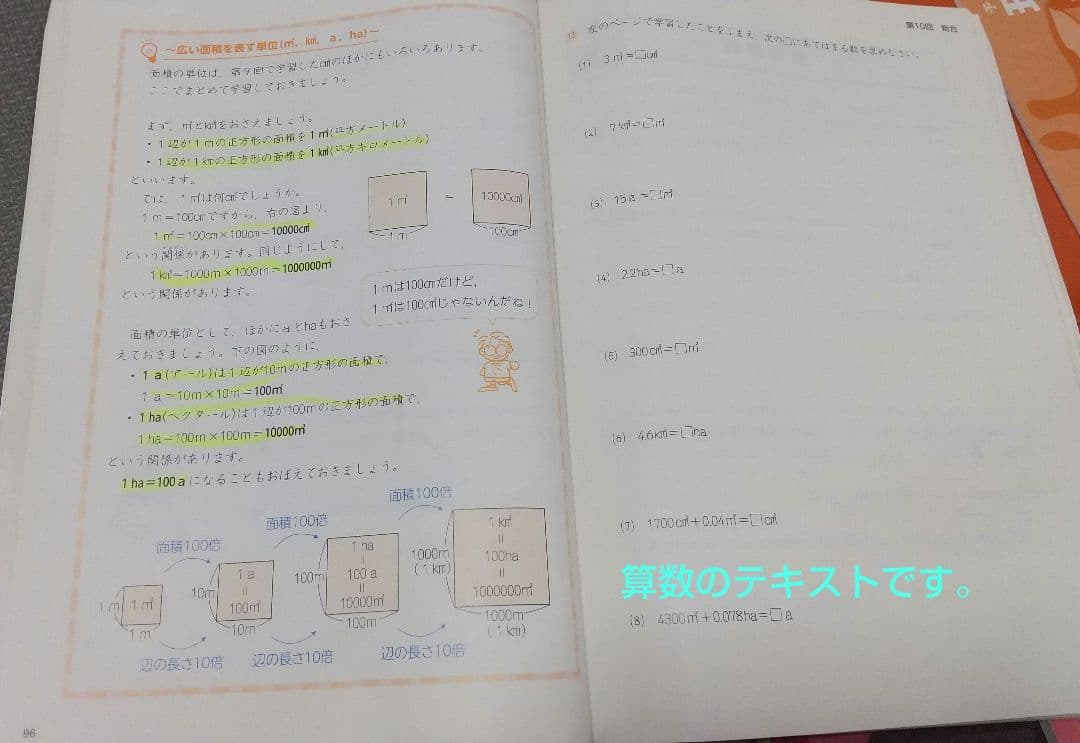 〜広い面積を表す単位(㎡, ㎢, a, ha)〜
面積の単位は、第9回で学習した㎠のほかにもいろいろあります。
ここでまとめて学習しておきましょう。
まず、㎡と㎢をおさえましょう。
・1辺が1mの正方形の面積を1㎡(平方メートル)
・1辺が1kmの正方形の面積を1㎢(平方キロメートル)
といいます。
では、1㎡は何㎠でしょうか。
1m=100cmですから、右の図より、
1㎡=100cm×100cm=10000㎠
という関係があります。同じようにして、
1㎢=1000m×1000m=1000000㎡
という関係があります。
1㎡
1m
=
10000㎠
100cm
1mは100cmだけど、
1㎡は100㎠じゃないんだね!
面積の単位として、ほかにaとhaもおさ
えておきましょう。下の図のように、
・1a(アール)は1辺が10mの正方形の面積で、
1a=10m×10m=100㎡
・1ha(ヘクタール)は1辺が100mの正方形の面積で、
1ha=100m×100m=10000㎡
という関係があります。
1ha=100aになることもおぼえておきましょう。
面積100倍
面積100倍
面積100倍
1m
1㎡
1m
10m
1a
=
100㎡
10m
100m
1ha
=
100a
=
10000㎡
100m
1000m
(1km)
1㎢
=
100ha
=
1000000㎡
1000m
(1km)
辺の長さ10倍
辺の長さ10倍
辺の長さ10倍
96
第10回 総合
13 左のページで学習したことをふまえ、次の□にあてはまる数を求めなさい。
(1) 3㎡=□㎠
(2) 7㎢=□㎡
(3) 15a=□㎡
(4) 2.2ha=□a
(5) 300㎠=□㎡
(6) 4.6㎢=□ha
(7) 1700㎠+0.04㎡=□㎠
算数のテキストです。
(8) 4300㎡+0.078ha=□a